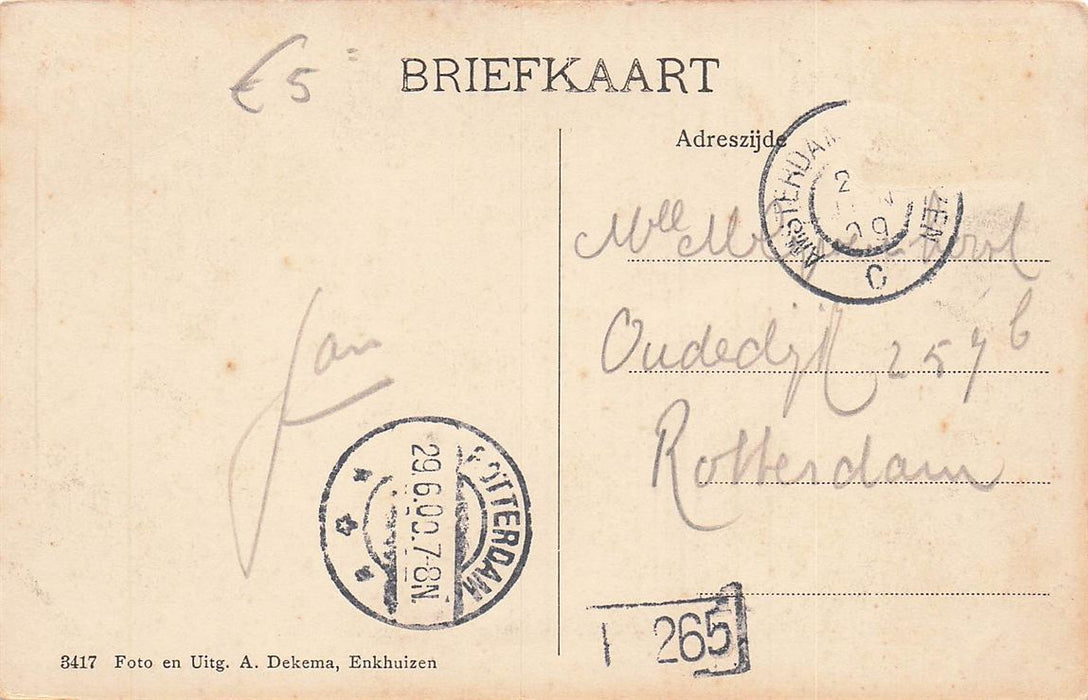 €5
BRIEFKAART
Adreszijde
AMSTERDAM ZEN
2
09
C
Mlle
Oudedijk 257 b
Rotterdam
Jan
ROTTERDAM
29.6.09.7-8N.
265
3417 Foto en Uitg. A. Dekema, Enkhuizen